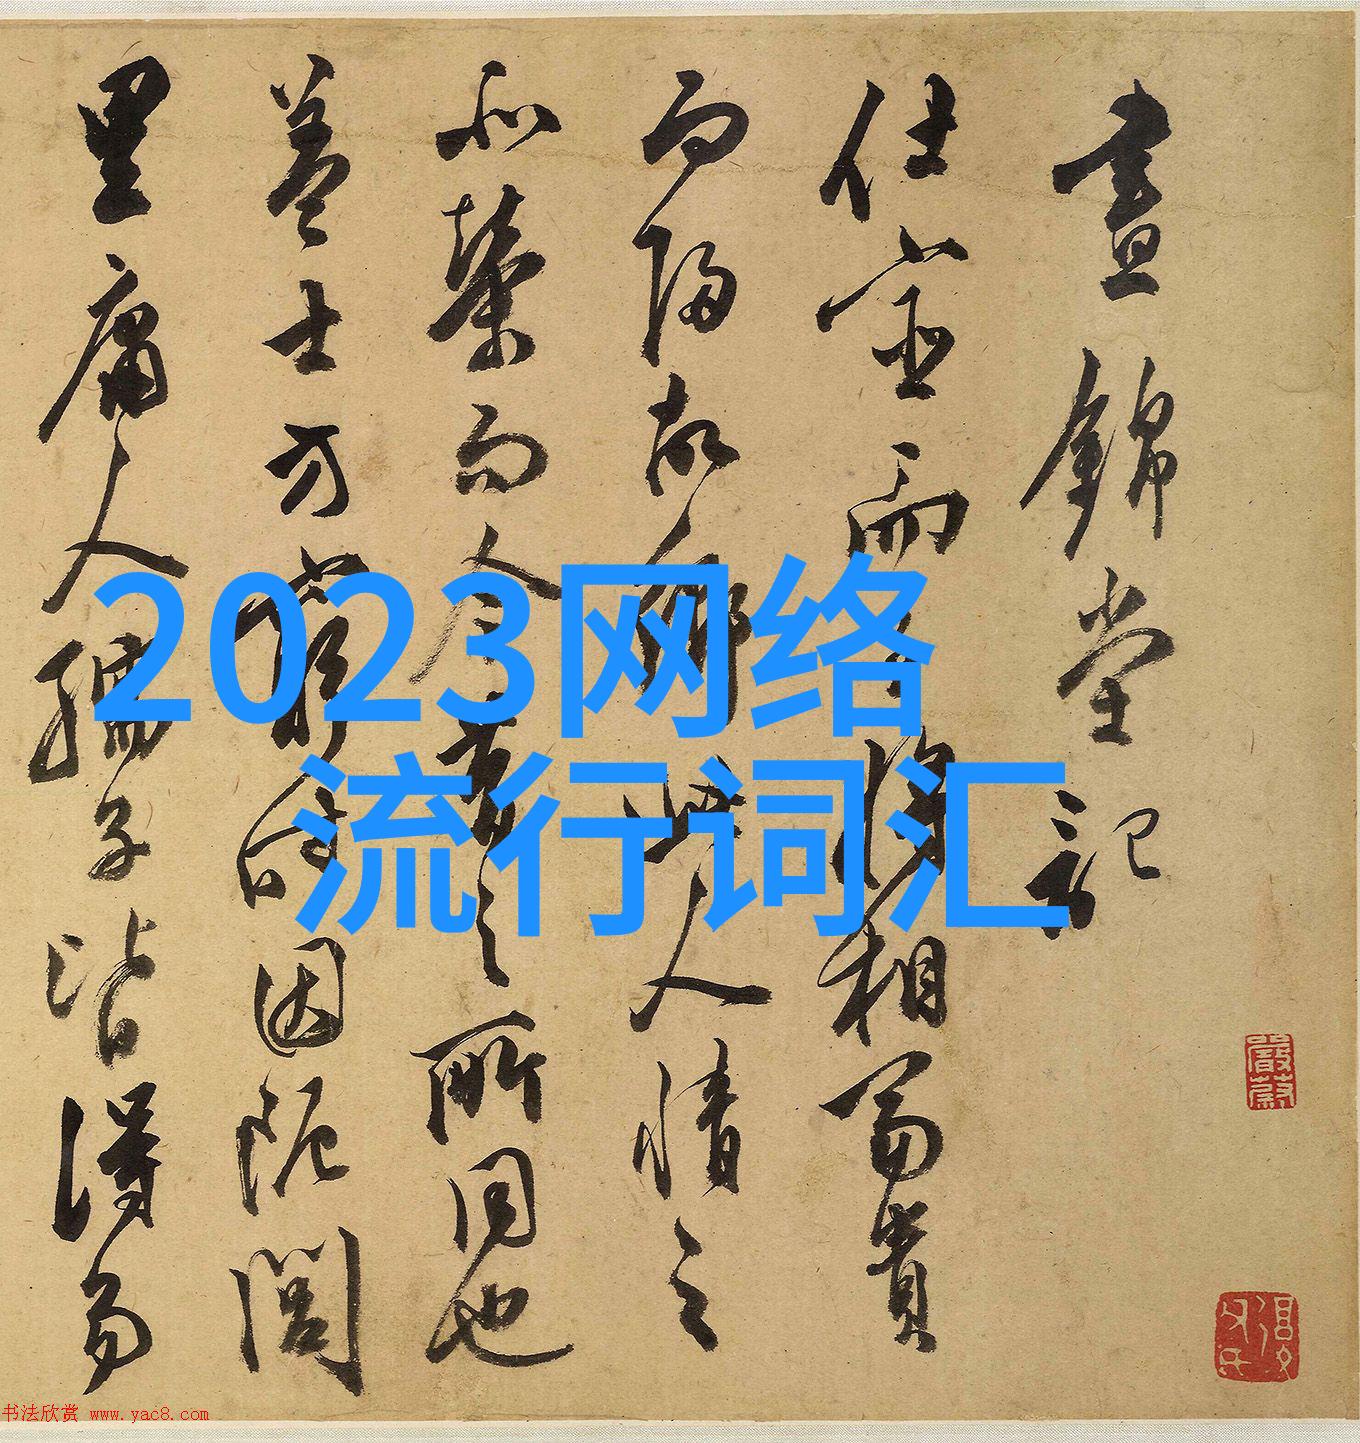 晝錦堂記
仕宦而至將相富貴
而歸故鄉此人情之
所榮而今昔之所同也
蓋士方窮時困阨閭
里庸人孺子皆得易
2023网络
流行词汇
书法欣赏 www.yac8.com